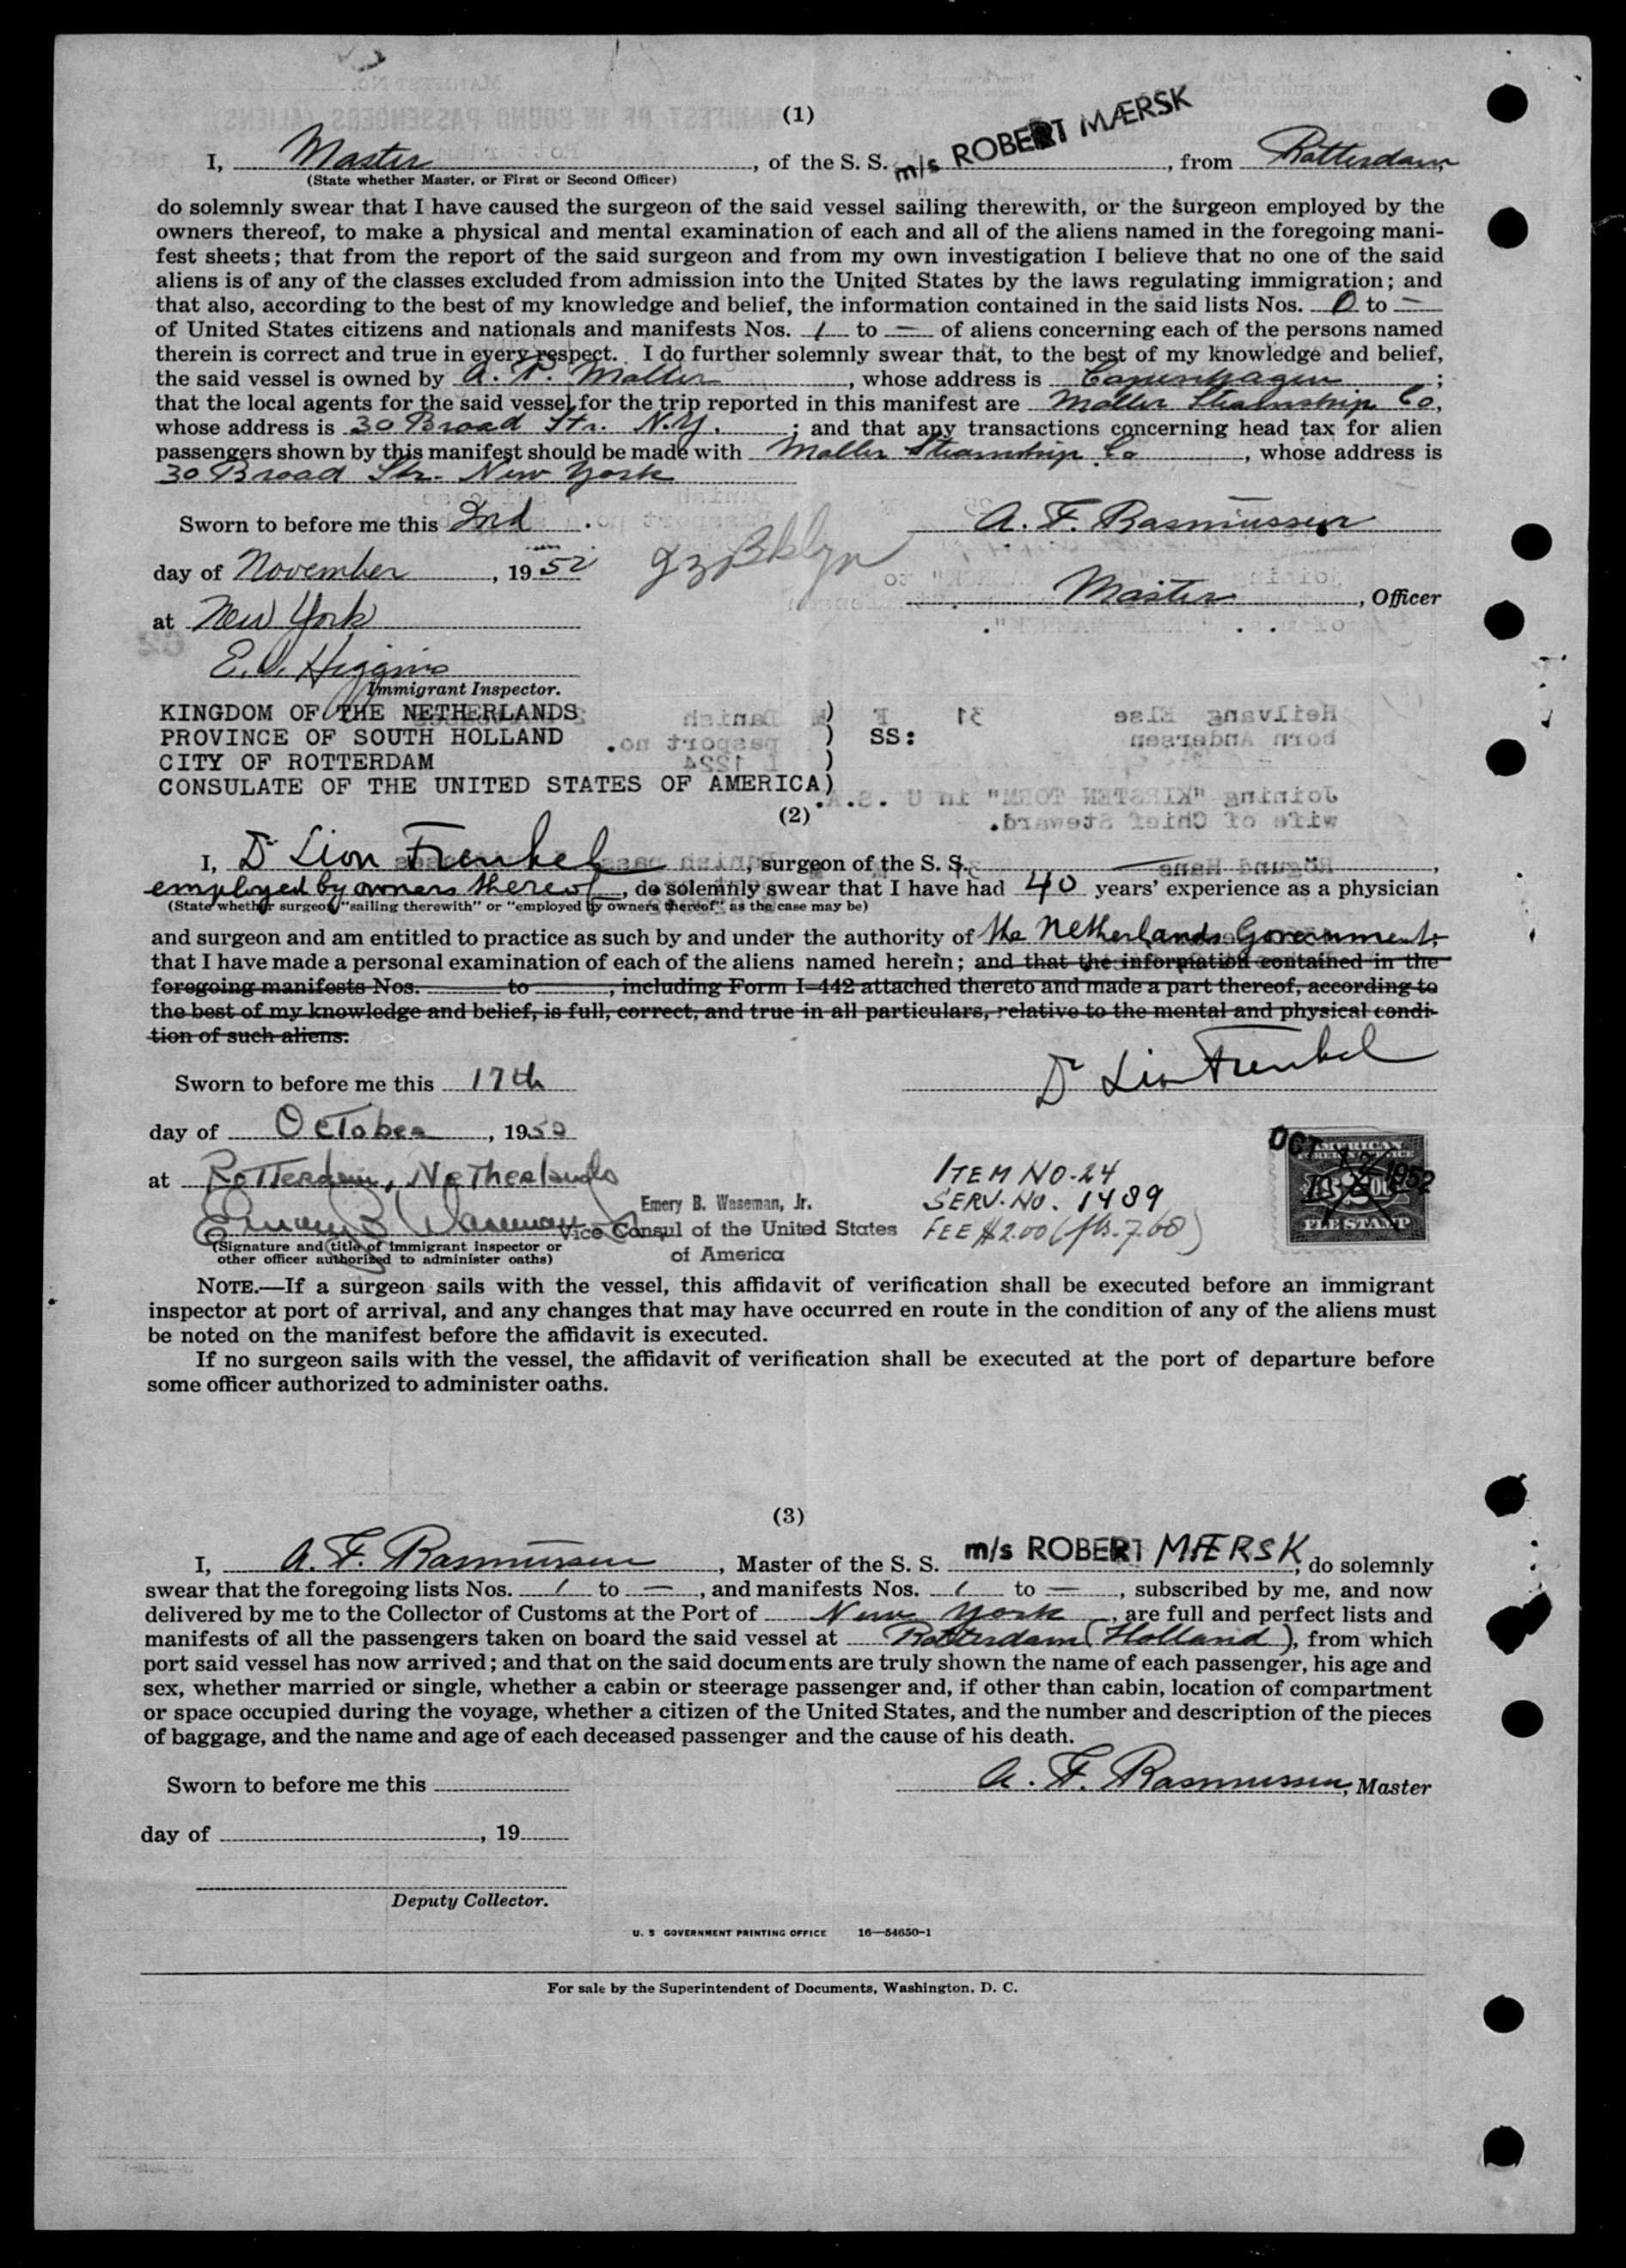 (1)
I, Master, of the S. S. m/s ROBERT MÆRSK, from Rotterdam,
(State whether Master, or First or Second Officer)
do solemnly swear that I have caused the surgeon of the said vessel sailing therewith, or the surgeon employed by the
owners thereof, to make a physical and mental examination of each and all of the aliens named in the foregoing mani-
fest sheets; that from the report of the said surgeon and from my own investigation I believe that no one of the said
aliens is of any of the classes excluded from admission into the United States by the laws regulating immigration; and
that also, according to the best of my knowledge and belief, the information contained in the said lists Nos. 0 to —
of United States citizens and nationals and manifests Nos. 1 to — of aliens concerning each of the persons named
therein is correct and true in every respect. I do further solemnly swear that, to the best of my knowledge and belief,
the said vessel is owned by A. P. Moller, whose address is Copenhagen;
that the local agents for the said vessel for the trip reported in this manifest are Moller Steamship Co,
whose address is 30 Broad Str. N.Y.; and that any transactions concerning head tax for alien
passengers shown by this manifest should be made with Moller Steamship Co, whose address is
30 Broad Str. New York
Sworn to before me this 2nd A. F. Rasmussen
day of November, 1952 Bklyn
Master, Officer
at New York
E. V. Higgins
Immigrant Inspector.
KINGDOM OF THE NETHERLANDS )
PROVINCE OF SOUTH HOLLAND ) SS:
CITY OF ROTTERDAM )
CONSULATE OF THE UNITED STATES OF AMERICA)
(2)
I, Dr Lion Frenkel, surgeon of the S. S.,
employed by owners thereof, do solemnly swear that I have had 40 years' experience as a physician
(State whether surgeon "sailing therewith" or "employed by owners thereof" as the case may be)
and surgeon and am entitled to practice as such by and under the authority of the Netherlands Government;
that I have made a personal examination of each of the aliens named herein; and that the information contained in the
foregoing manifests Nos. to , including Form I-442 attached thereto and made a part thereof, according to
the best of my knowledge and belief, is full, correct, and true in all particulars, relative to the mental and physical condi-
tion of such aliens.
Sworn to before me this 17th Dr Lion Frenkel
day of October, 1952
at Rotterdam, Netherlands
ITEM NO. 24
SERV. NO. 1489
FEE $2.00 (fls. 7.60)
OCT 17 1952
AMERICAN
FOREIGN SERVICE
FEE STAMP
Emery B. Waseman, Jr.
Emery B. Waseman Jr. Vice Consul of the United States
of America
(Signature and title of immigrant inspector or
other officer authorized to administer oaths)
NOTE.—If a surgeon sails with the vessel, this affidavit of verification shall be executed before an immigrant
inspector at port of arrival, and any changes that may have occurred en route in the condition of any of the aliens must
be noted on the manifest before the affidavit is executed.
If no surgeon sails with the vessel, the affidavit of verification shall be executed at the port of departure before
some officer authorized to administer oaths.
(3)
I, A. F. Rasmussen, Master of the S. S. m/s ROBERT MÆRSK, do solemnly
swear that the foregoing lists Nos. 1 to —, and manifests Nos. 1 to —, subscribed by me, and now
delivered by me to the Collector of Customs at the Port of New York, are full and perfect lists and
manifests of all the passengers taken on board the said vessel at Rotterdam (Holland), from which
port said vessel has now arrived; and that on the said documents are truly shown the name of each passenger, his age and
sex, whether married or single, whether a cabin or steerage passenger and, if other than cabin, location of compartment
or space occupied during the voyage, whether a citizen of the United States, and the number and description of the pieces
of baggage, and the name and age of each deceased passenger and the cause of his death.
Sworn to before me this A. F. Rasmussen, Master
day of , 19
Deputy Collector.
U. S GOVERNMENT PRINTING OFFICE 16—54650-1
For sale by the Superintendent of Documents, Washington, D. C.